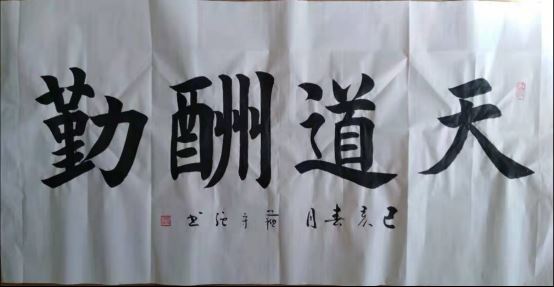 天道酬勤
己亥春月